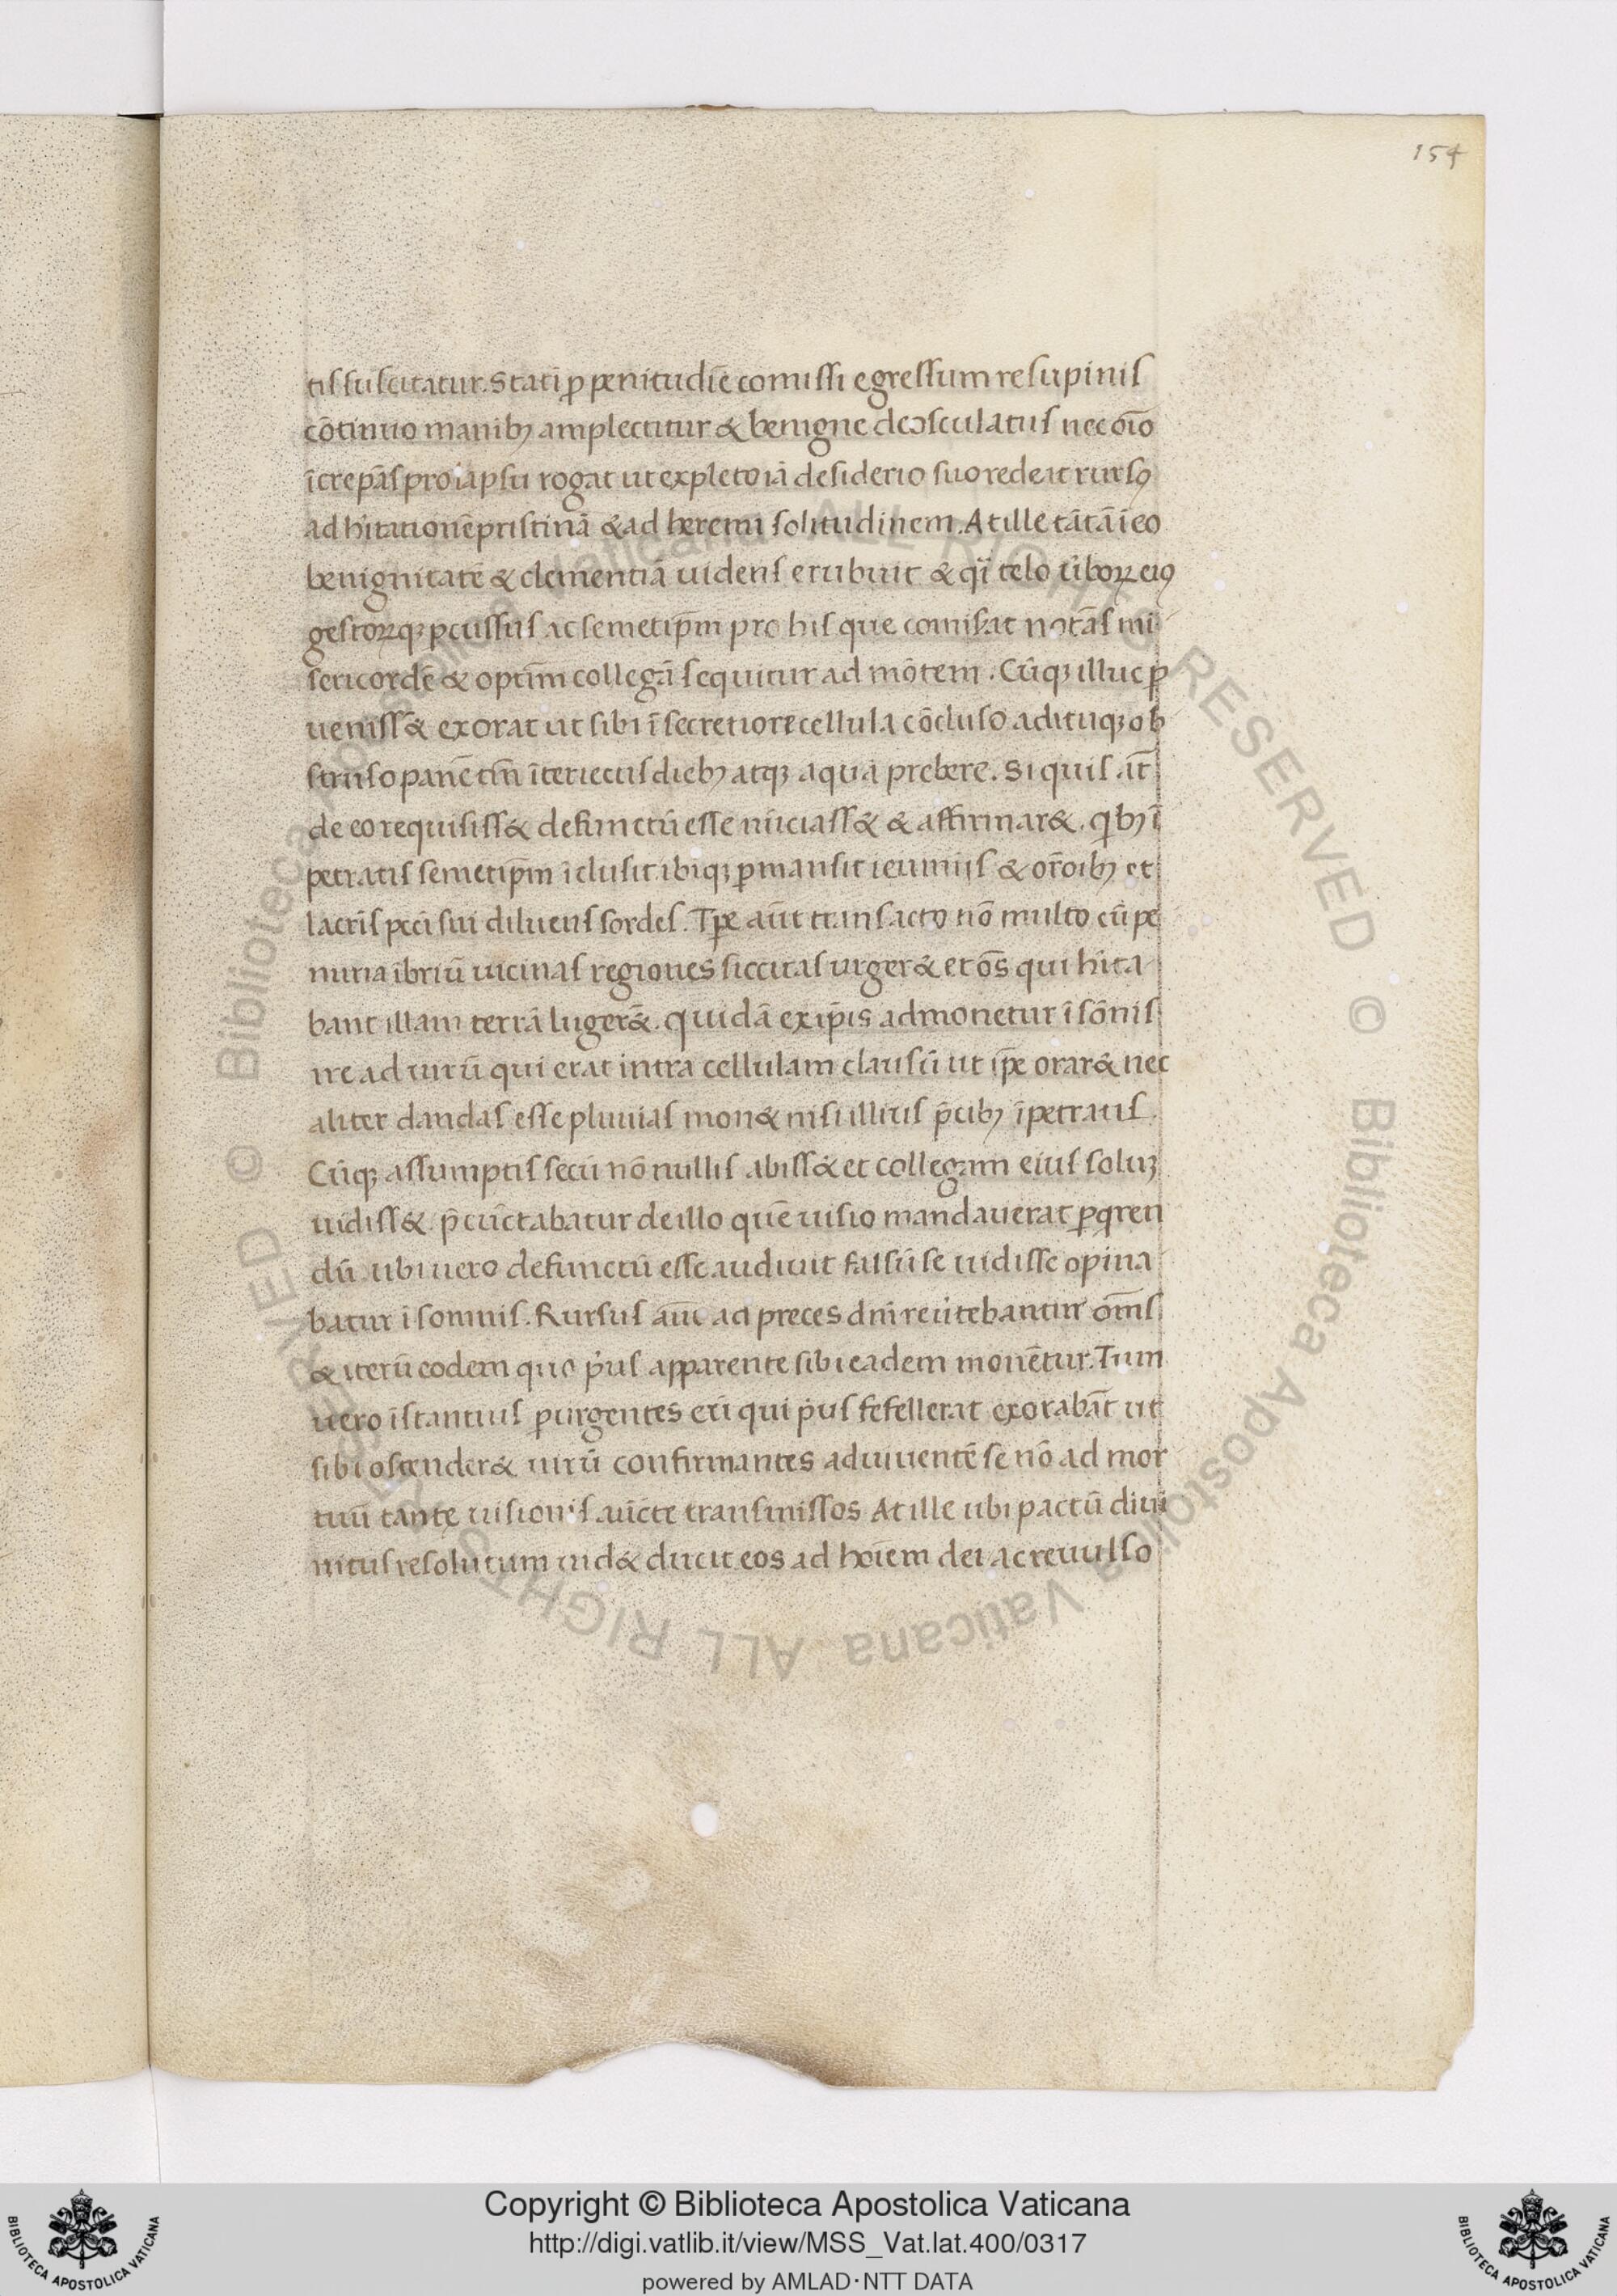 154
tis suscitatur. Statī ꝑ penitudīe comissi egressum resupinis
cōtinuo manibꝫ amplectitur & benigne deosculatus nec oīo
īcrepās pro lapsu rogat ut expleto iā desiderio suo redeat rursꝯ
ad hītationē pristinā & ad heremi solitudinem. At ille tātā ī eo
benignitatē & clementiā uidens erubuit & q̄i telo ūboꝝ eiꝯ
gestoꝝqꝫ ꝑcussus ac semetip̄m pro his que comisat notās mi
sericordē & optim̄ collegā sequitur ad mōtem. Cūqꝫ illuc ꝑ
ueniss& exorat ut sibi ī secretiore cellula cōcluso adituqꝫ ob
struso panē tm̄ īteriectis diebꝫ atqꝫ aquā prebere. Si quis aūt
de eo requisiss& defunctū esse nūciass& & affirmar&. qͥbꝫ ī
petratis semetip̄m īclusit ibiqꝫ ꝑmansit ieiuniis & orōibꝫ et
lacrīs pcc̄i sui diluens sordes. Tꝑe aūt transacto nō multo cū pe
nuria ībriū uicinas regiones siccitas urger& et oēs qui hīta
bant illam terrā luger&. quidā ex ip̄is admonetur ī sōnis
ire ad uirū qui erat intra cellulam clausū ut ip̄e orar& nec
aliter dandas esse pluuias mon& nisi illius p̄cibꝫ īpetratis.
Cūqꝫ assumptis secū nō nullis abiss& et collegam eius soluꝫ
uidiss& p̄cūctabatur de illo quē uisio mandauerat ꝑqͥren
dū ubi uero defunctū esse audiuit falsū se uidisse opina
batur ī somnis. Rursus aūt ad preces dn̄i reūtebantur om̄s
& iterū eodem quo pͥus apparente sibi eadem monētur. Tum
uero īstantius ꝑurgentes eū qui pͥus fefellerat exorabāt ut
sibi ostender& uirū confirmantes ad uiuentē se nō ad mor
tuū tantę uisionis aūcte transmissos At ille ubi pactū diui
nitus resolutum uid& ducit eos ad hoīem dei ac reuulso
© Biblioteca Apostolica Vaticana ALL RIGHTS RESERVED © Biblioteca Apostolica Vaticana ALL RIGHTS RESERVED
Copyright © Biblioteca Apostolica Vaticana
http://digi.vatlib.it/view/MSS_Vat.lat.400/0317
powered by AMLAD·NTT DATA
BIBLIOTECA APOSTOLICA VATICANA
BIBLIOTECA APOSTOLICA VATICANA